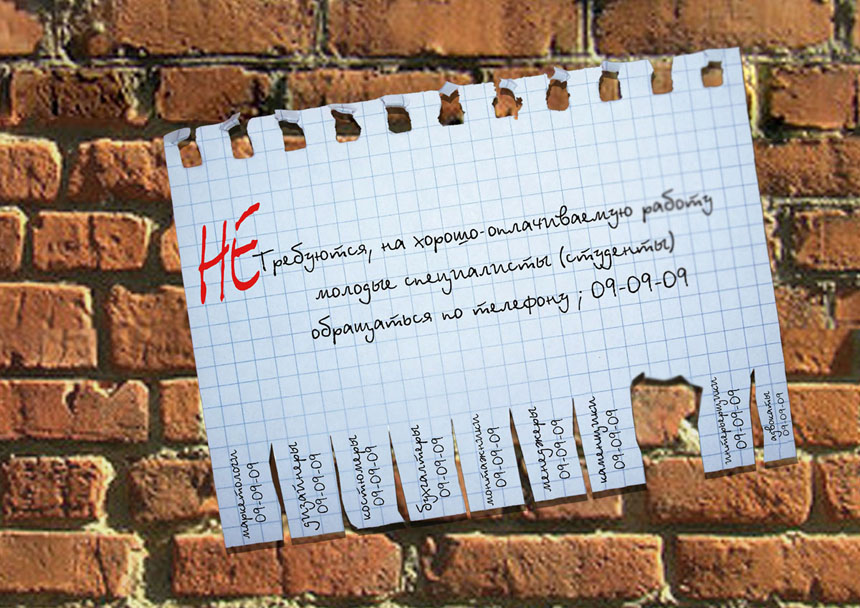 НЕ Требуются, на хорошо-оплачиваемую работу
молодые специалисты (студенты)
обращаться по телефону ; 09-09-09
маркетологи
09-09-09
дизайнеры
09-09-09
костюмеры
09-09-09
бухгалтеры
09-09-09
монтажники
09-09-09
менеджеры
09-09-09
каменщики
09-09-09
интерьерщики
09-09-09
адвокаты
09-09-09